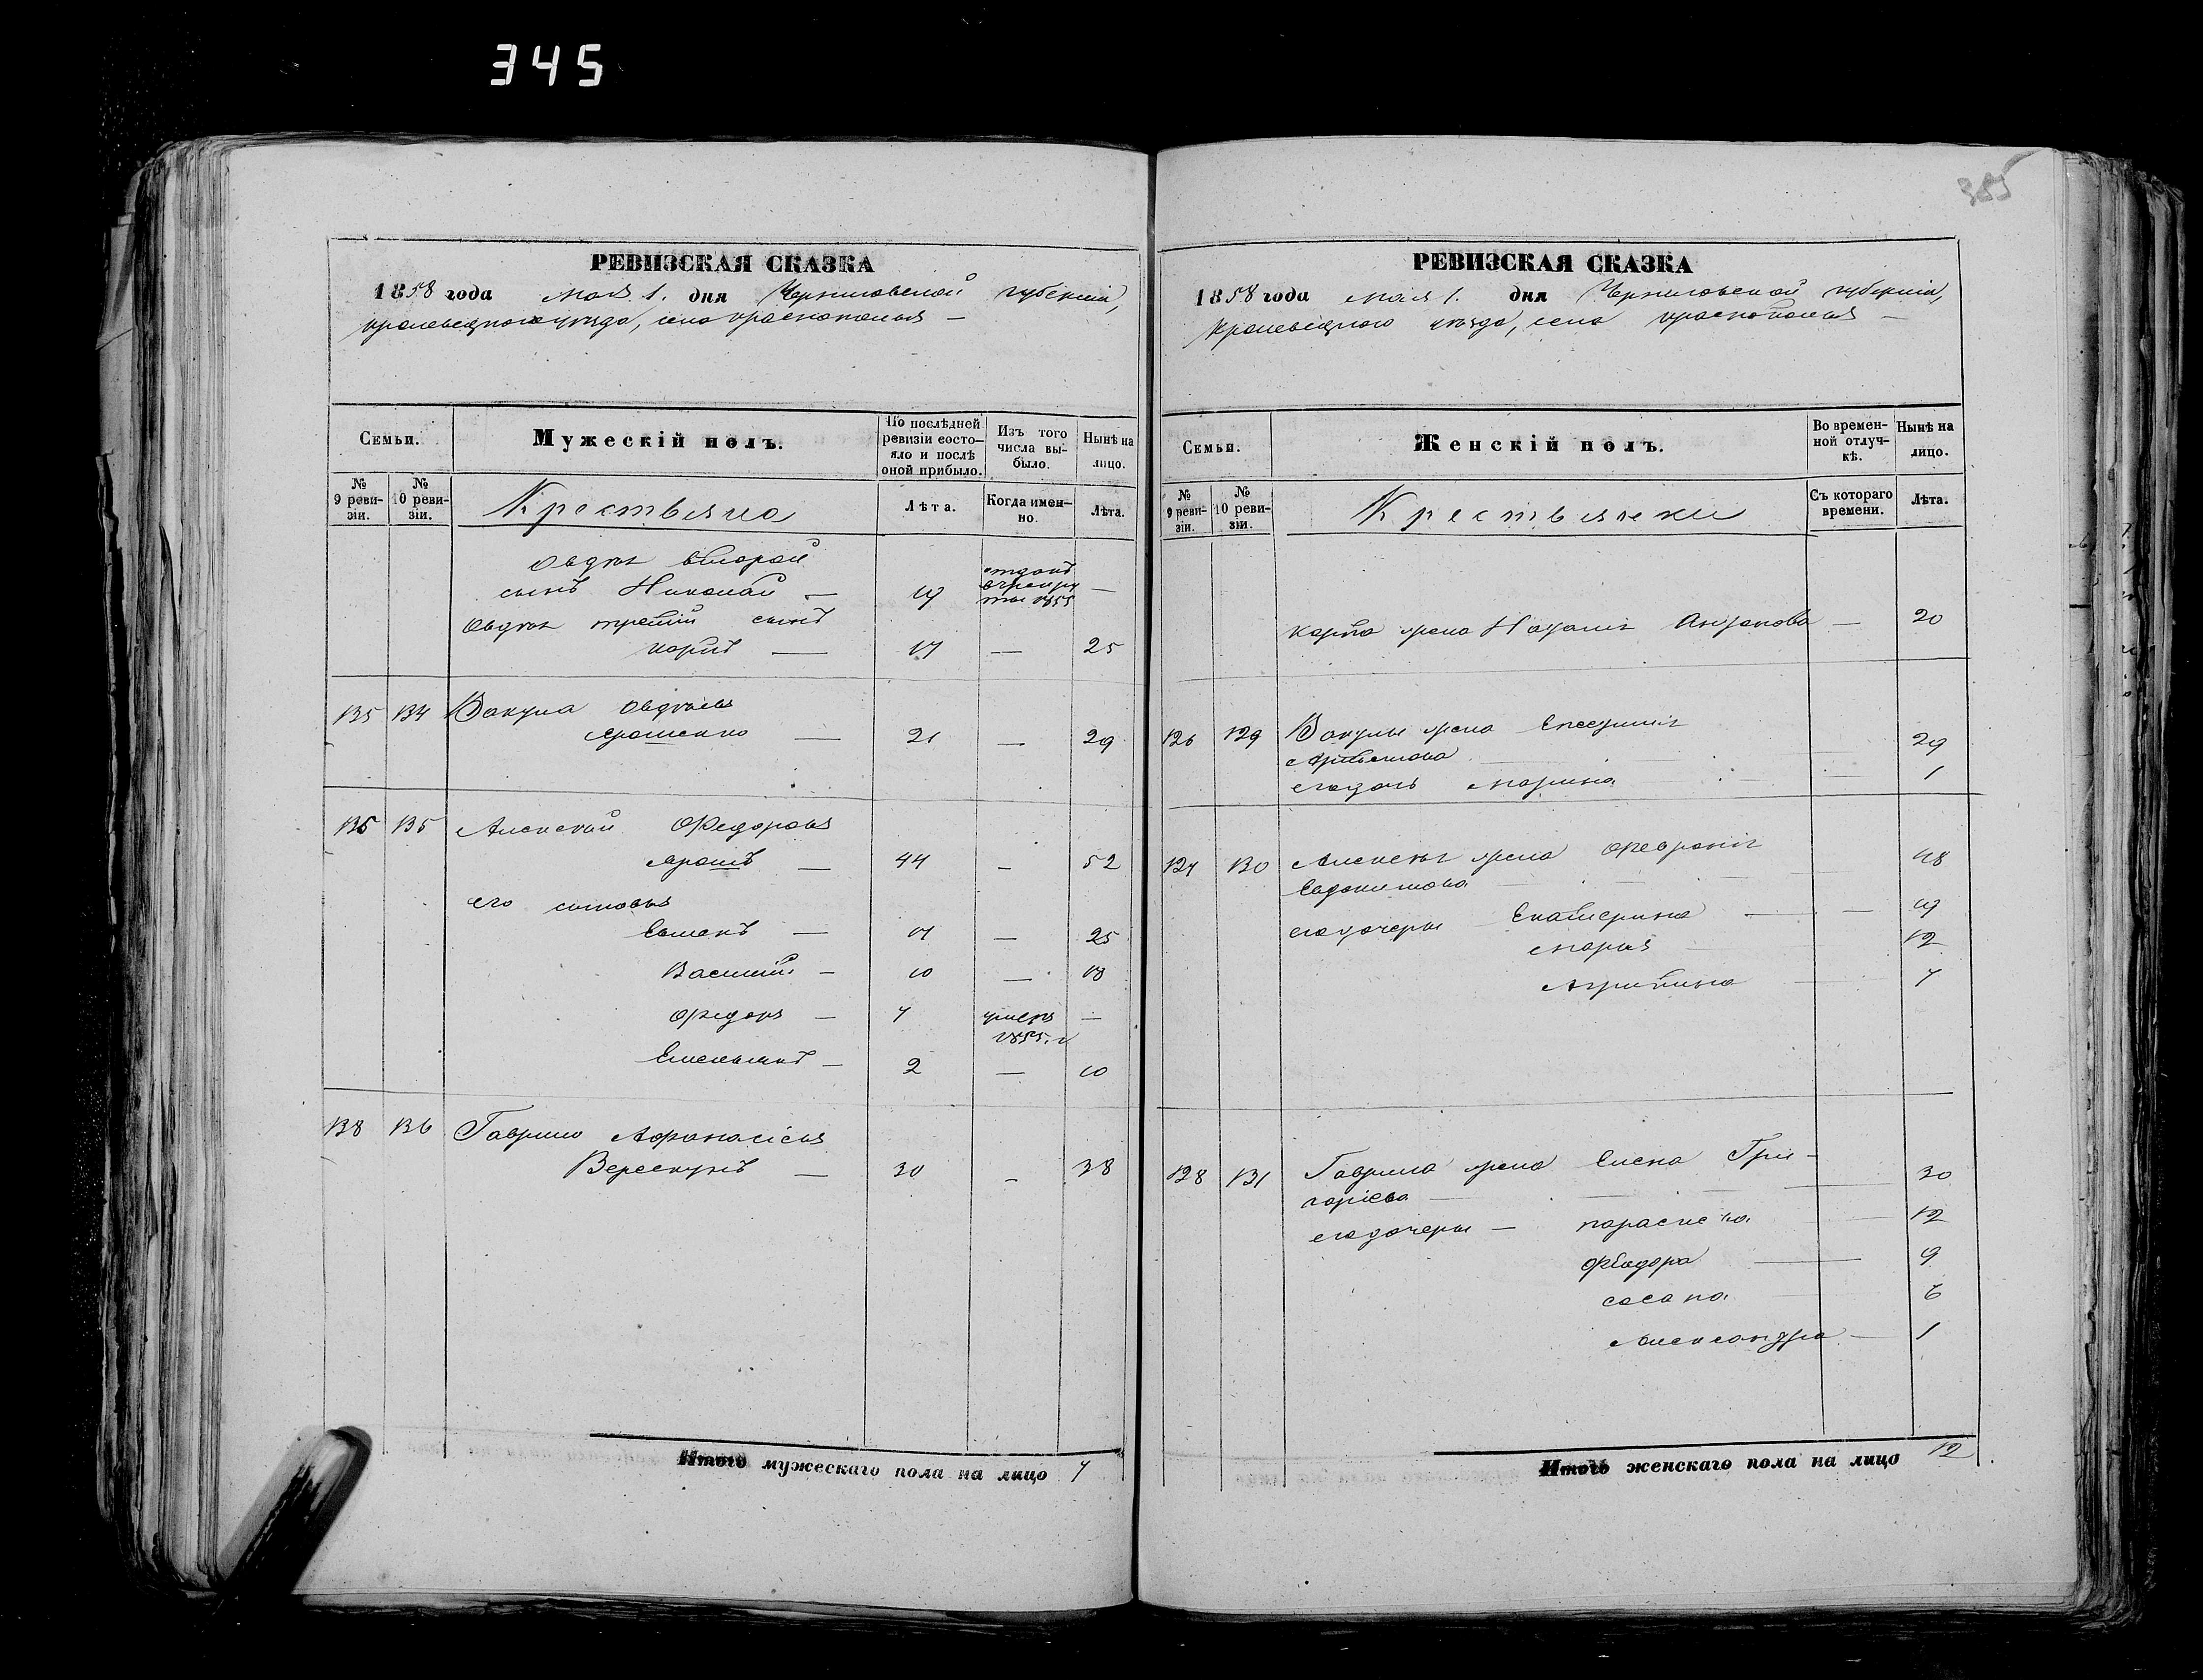 345
385
РЕВИЗСКАЯ СКАЗКА
1858 года мая 1. дня Черниговской губерніи,
кролевецкого уезда, села краснополья —
Семьи.
Мужескій полъ.
По послѣдней ревизіи состо-
яло и послѣ оной прибыло.
Изъ того числа вы-
было.
Нынѣ на лицо.
№ 9 реви-
зіи.
№ 10 реви-
зіи.
Крестьяна
Лѣта.
Когда имен-
но.
Лѣта.
второй
сынъ Николай — 19 —
1855
третій сынъ
карпъ — 17 — 25
135 134 Вакула
— 21 — 29
136 135 Алексей Федоровъ
— 44 — 52
его сыновья
Семенъ — 17 — 25
Василий — 10 — 18
Федоръ — 7 умеръ —
1855. г
Емельянъ — 2 — 10
138 136 Гаврило Афонасіевъ
Верескунъ — 30 — 38
Итого мужескаго пола на лицо 7
РЕВИЗСКАЯ СКАЗКА
1858 года мая 1. дня Черниговской губерніи,
кролевецкого уезда, села краснополья —
Семьи.
Женскій полъ.
Во времен-
ной отлуч-
кѣ.
Нынѣ на лицо.
№ 9 реви-
зіи.
№ 10 реви-
зіи.
Крестьянки
Съ котораго времени.
Лѣта.
карпа жена Наталия — 20
126 129 Вакулы жена
29
его дочь марина — 1
127 130 Алексея жена
Евдокимова 48
его дочери Екатерина — 19
марья 12
Агрипина 7
128 131 Гаврила жена Елена Гри-
горіева — 30
его дочери — параскева 12
Феодора — 9
6
Александра — 1
Итого женскаго пола на лицо 12